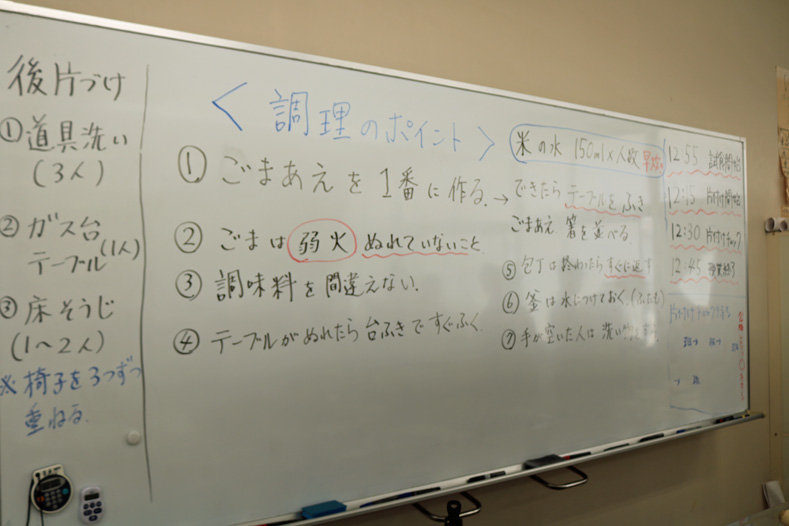 後片づけ
①道具洗い
(3人)
②ガス台
テーブル(1人)
③床そうじ
(1〜2人)
※椅子を3つずつ
重ねる.
＜調理のポイント＞
①ごまあえを1番に作る.→できたらテーブルをふき
ごまあえ 箸を並べる.
②ごまは弱火 ぬれていないこと
③調味料を間違えない.
④テーブルがぬれたら台ふきですぐふく
米の水 150ml×人数
⑤包丁は終わったらすぐに返す
⑥釜は水につけておく
⑦手が空いた人は洗い
12:55 試食開始
12:15 片付け開始
12:30 片付けチェック
12:45